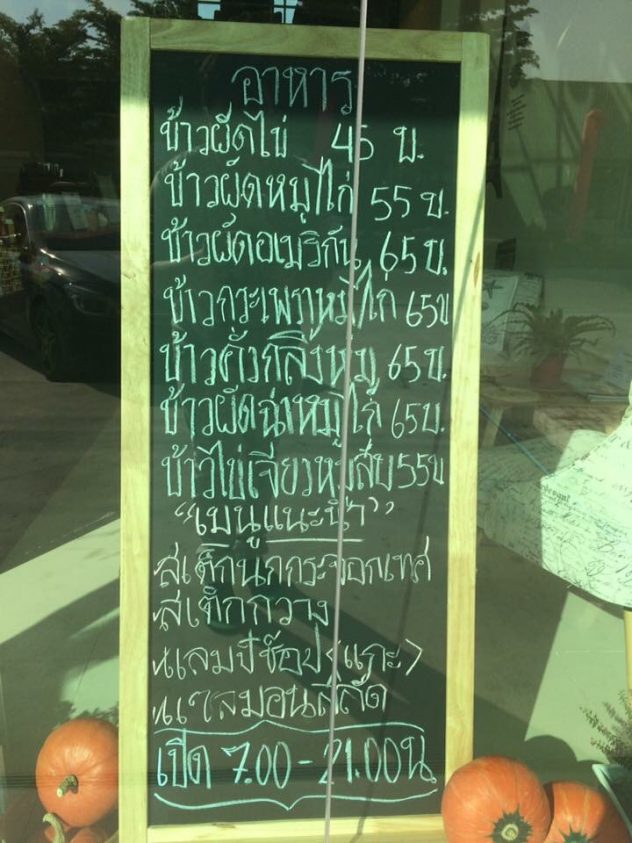 อาหาร
ข้าวผัดไข่ 45 บ.
ข้าวผัดหมู/ไก่ 55 บ.
ข้าวผัดอเมริกัน 65 บ.
ข้าวกระเพราหมู/ไก่ 65บ
ข้าวคั่วกลิ้งหมู 65บ.
ข้าวผัดฉ่าหมู/ไก่ 65บ.
ข้าวไข่เจียวหมูสับ 55บ
"เมนูแนะนำ"
สเต็กนกกระจอกเทศ
สเต็กกวาง
แลมป์ช๊อป <แกะ>
แซลมอนสลัด
เปิด 7.00 - 21.00น.